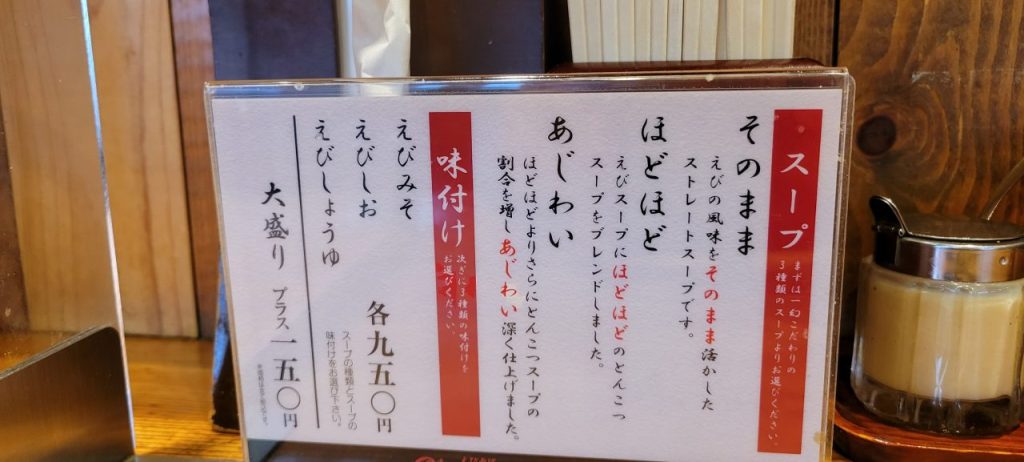 スープ
まずは一幻こだわりの
3種類のスープよりお選びください。
そのまま
えびの風味をそのまま活かした
ストレートスープです。
ほどほど
えびスープにほどほどのとんこつ
スープをブレンドしました。
あじわい
ほどほどよりさらにとんこつスープの
割合を増しあじわい深く仕上げました。
味付け
次ぎに3種類の味付けを
お選びください。
えびみそ
えびしお
えびしょうゆ
各九五〇円
スープの種類とスープの
味付けをお選び下さい。
大盛り プラス一五〇円